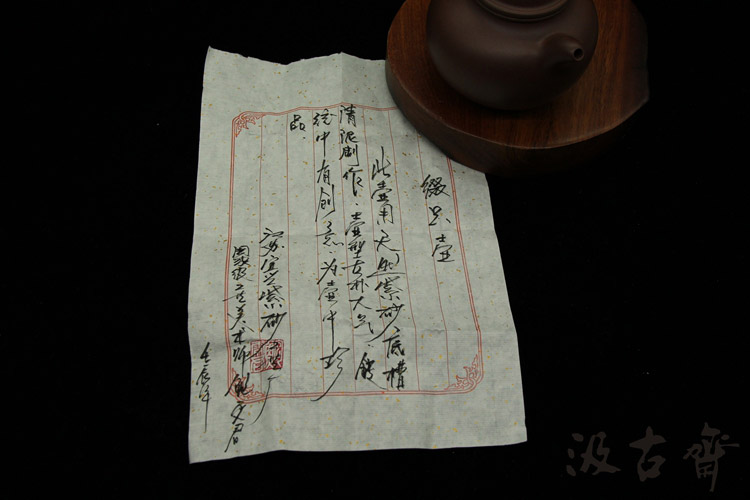 缀只壶
此壶用天然紫砂底槽
清泥制作.壶型古朴大气.传
统中有创意.为壶中珍
品.
江苏宜兴紫砂工艺厂
国家级工艺美术师
壬辰年
汲古齋